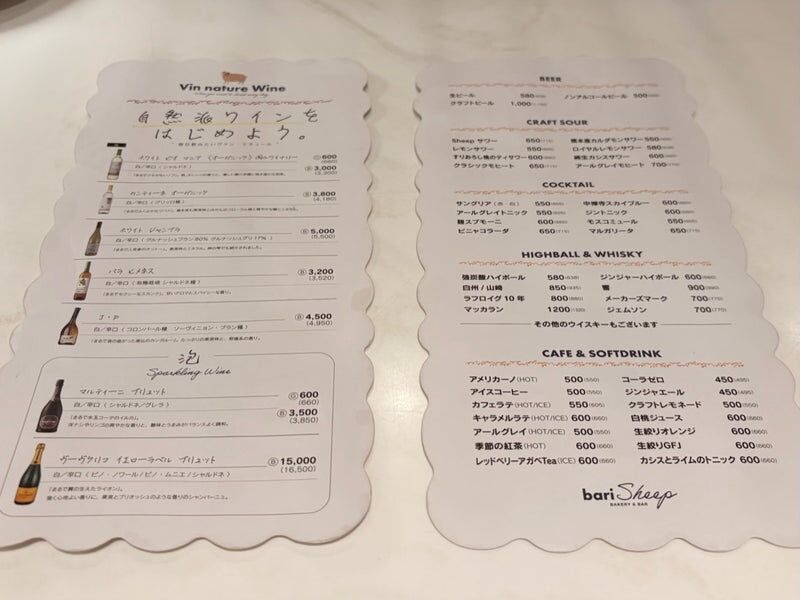 Vin nature Wine
自然派ワインを
はじめよう。
ホワイト
G 600
(660)
白/辛口(シャルドネ)
B 3,000
(3,300)
カンティーネ オーガニック
B 3,800
(4,180)
ホワイト ジャンプラ
B 5,000
(5,500)
白/辛口(グルナッシュブラン80% グルナッシュグリ17%)
パラ ヒメネス
B 3,200
(3,520)
白/辛口(有機栽培 シャルドネ種)
J・P
B 4,500
(4,950)
白/辛口(コロンバール種 ソーヴィニョン・ブラン種)
泡
Sparkling Wine
マルティーニ ブリュット
G 600
(660)
白/辛口(シャルドネ/グレラ)
B 3,500
(3,850)
洋ナシやリンゴの爽やかな香りと、酸味とうまみがバランスよく調和。
ヴーヴクリコ イエローラベル ブリュット
B 15,000
(16,500)
白/辛口(ピノ・ノワール/ピノ・ムニエ/シャルドネ)
「まるで翼の生えたライオン」
強く心地よい香りに、果実とブリオッシュのような香りのシャンパーニュ。
BEER
生ビール 580(638) ノンアルコールビール 500
クラフトビール 1,000
CRAFT SOUR
Sheep サワー 650(715) 熊本産カルダモンサワー 550
レモンサワー 550 ロイヤルレモンサワー 580
すりおろし桃のティサワー 600(660) 純生ガシスサワー 600(660)
クラシックモヒート 650(715) アールグレイモヒート 700(770)
COCKTAIL
サングリア(赤・白) 550(605) 中禅寺スカイブルー 600(660)
アールグレイトニック 550(605) ジントニック 600(660)
麹スプモーニ 600(660) モスコミュール 550(605)
ピニャコラーダ 650(715) マルガリータ 650(715)
HIGHBALL & WHISKY
強炭酸ハイボール 580(638) ジンジャーハイボール 600(660)
白州 / 山崎 850(935) 響 900(990)
ラフロイグ 10年 800(880) メーカーズマーク 700(770)
マッカラン 1200(1320) ジェムソン 700(770)
その他のウイスキーもございます
CAFE & SOFTDRINK
アメリカーノ(HOT) 500(550) コーラゼロ 450(495)
アイスコーヒー 500(550) ジンジャエール 450(495)
カフェラテ(HOT/ICE) 550(605) クラフトレモネード 500(550)
キャラメルラテ(HOT/ICE) 600(660) 白桃ジュース 600(660)
アールグレイ(HOT/ICE) 500(550) 生絞りオレンジ 600(660)
季節の紅茶(HOT) 600(660) 生絞りGFJ 600(660)
レッドベリーアガベTea(ICE) 600(660) カシスとライムのトニック 600(660)
bari Sheep
BAKERY & BAR